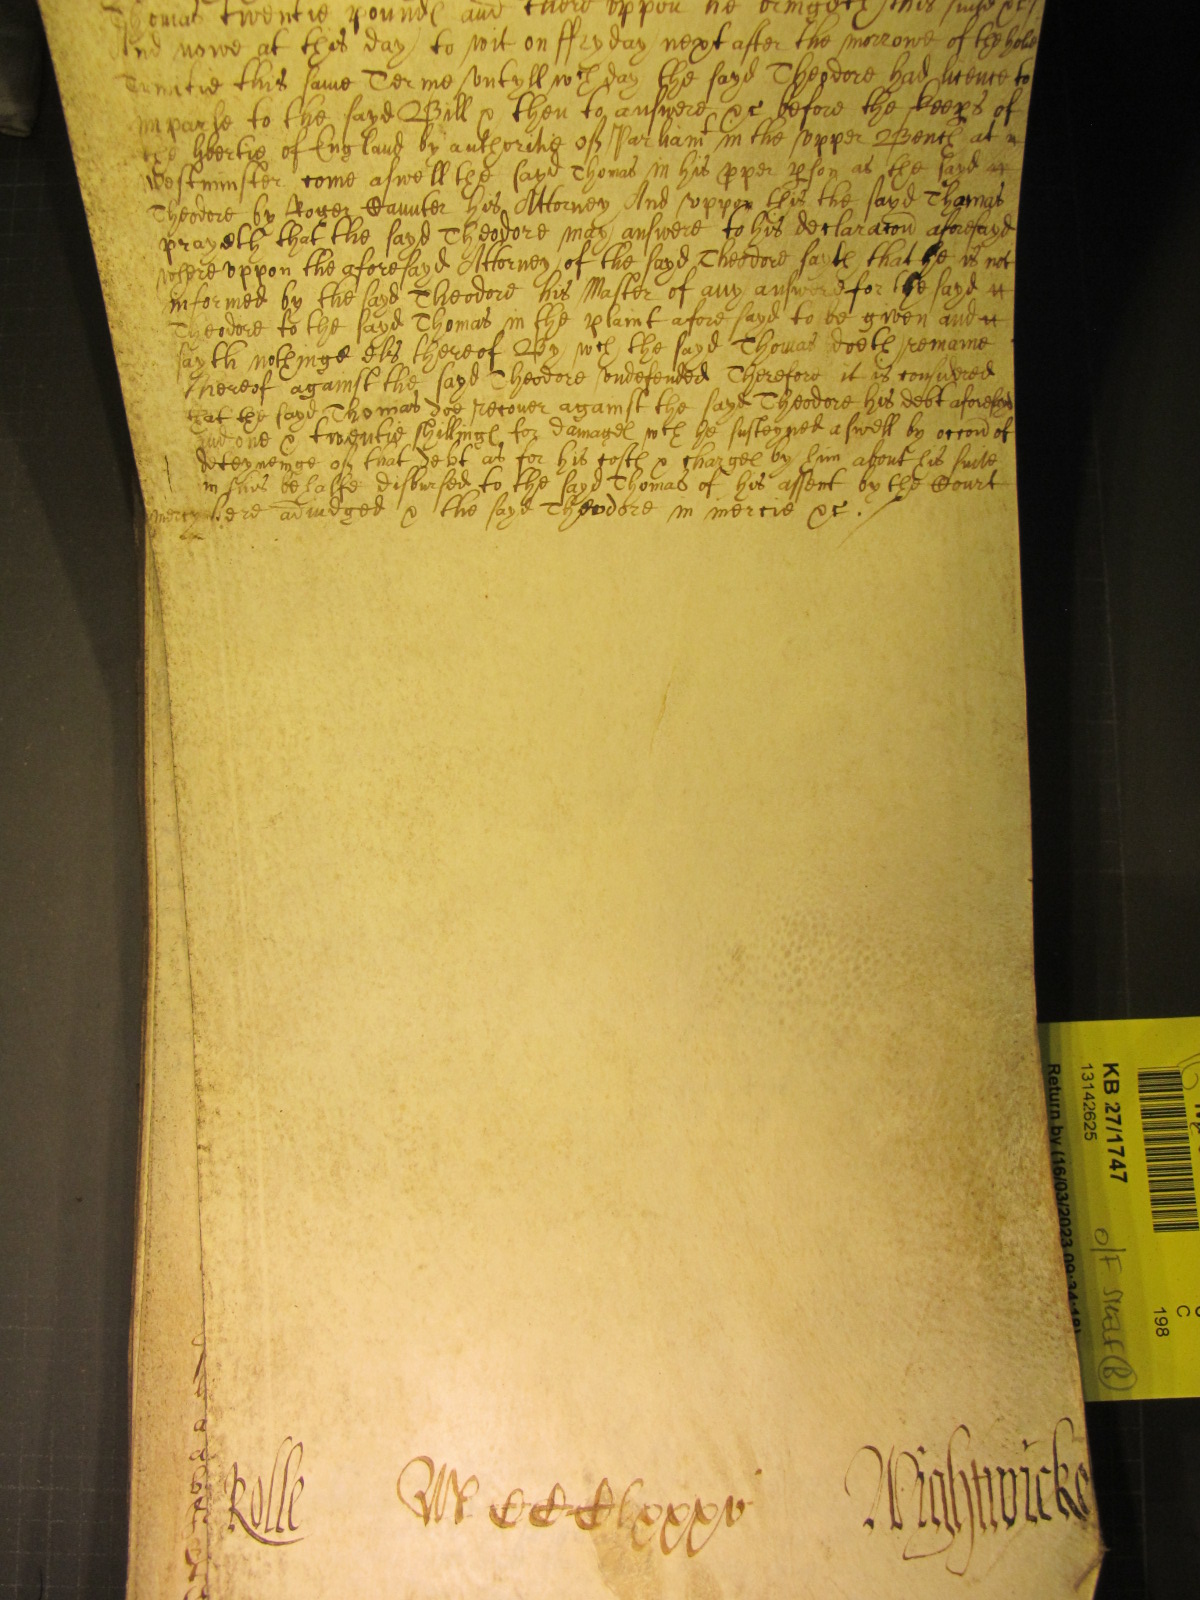 Thomas twentie pound and there uppon he bringeth this suite &c
And nowe at this day to wit on ffryday next after the morrowe of the holie
Trinitie this same Terme untyll wch day the sayd Theodore had licence to
imparle to the sayd Bill & then to answere &c before the keeprs of
the libertie of England by authoritie of Parliamt in the upper Bench at
Westminster come aswell the sayd Thomas in his pper pson as the sayd
Theodore by Roger Gaunter his Attorney And uppon this the sayd Thomas
prayeth that the sayd Theodore may answere to his declaracon aforesayd
where uppon the aforesayd Attorney of the sayd Theodore sayth that he is not
informed by the sayd Theodore his Master of any answere for the sayd
Theodore to the sayd Thomas in the plaint afore sayd to be given and
sayth nothinge els thereof By wch the sayd Thomas doeth remaine
thereof against the sayd Theodore undefended Therefore it is considered
that the sayd Thomas doe recover against the sayd Theodore his debt aforesayd
and one & twentie shillings for damages wch he susteyned aswell by occon of
deteyneinge of that debt as for his costs & charges by him about his suite
in this behalfe disbursed to the sayd Thomas of his assent by the Court
mercy here adiudged & the sayd Theodore in mercie &c.
Rolle MCCCClxxxv Nightwicke
KB 27/1747
13142625
Return by (16/03/2023 09:34:18)
O/F Shelf (B)
C
198